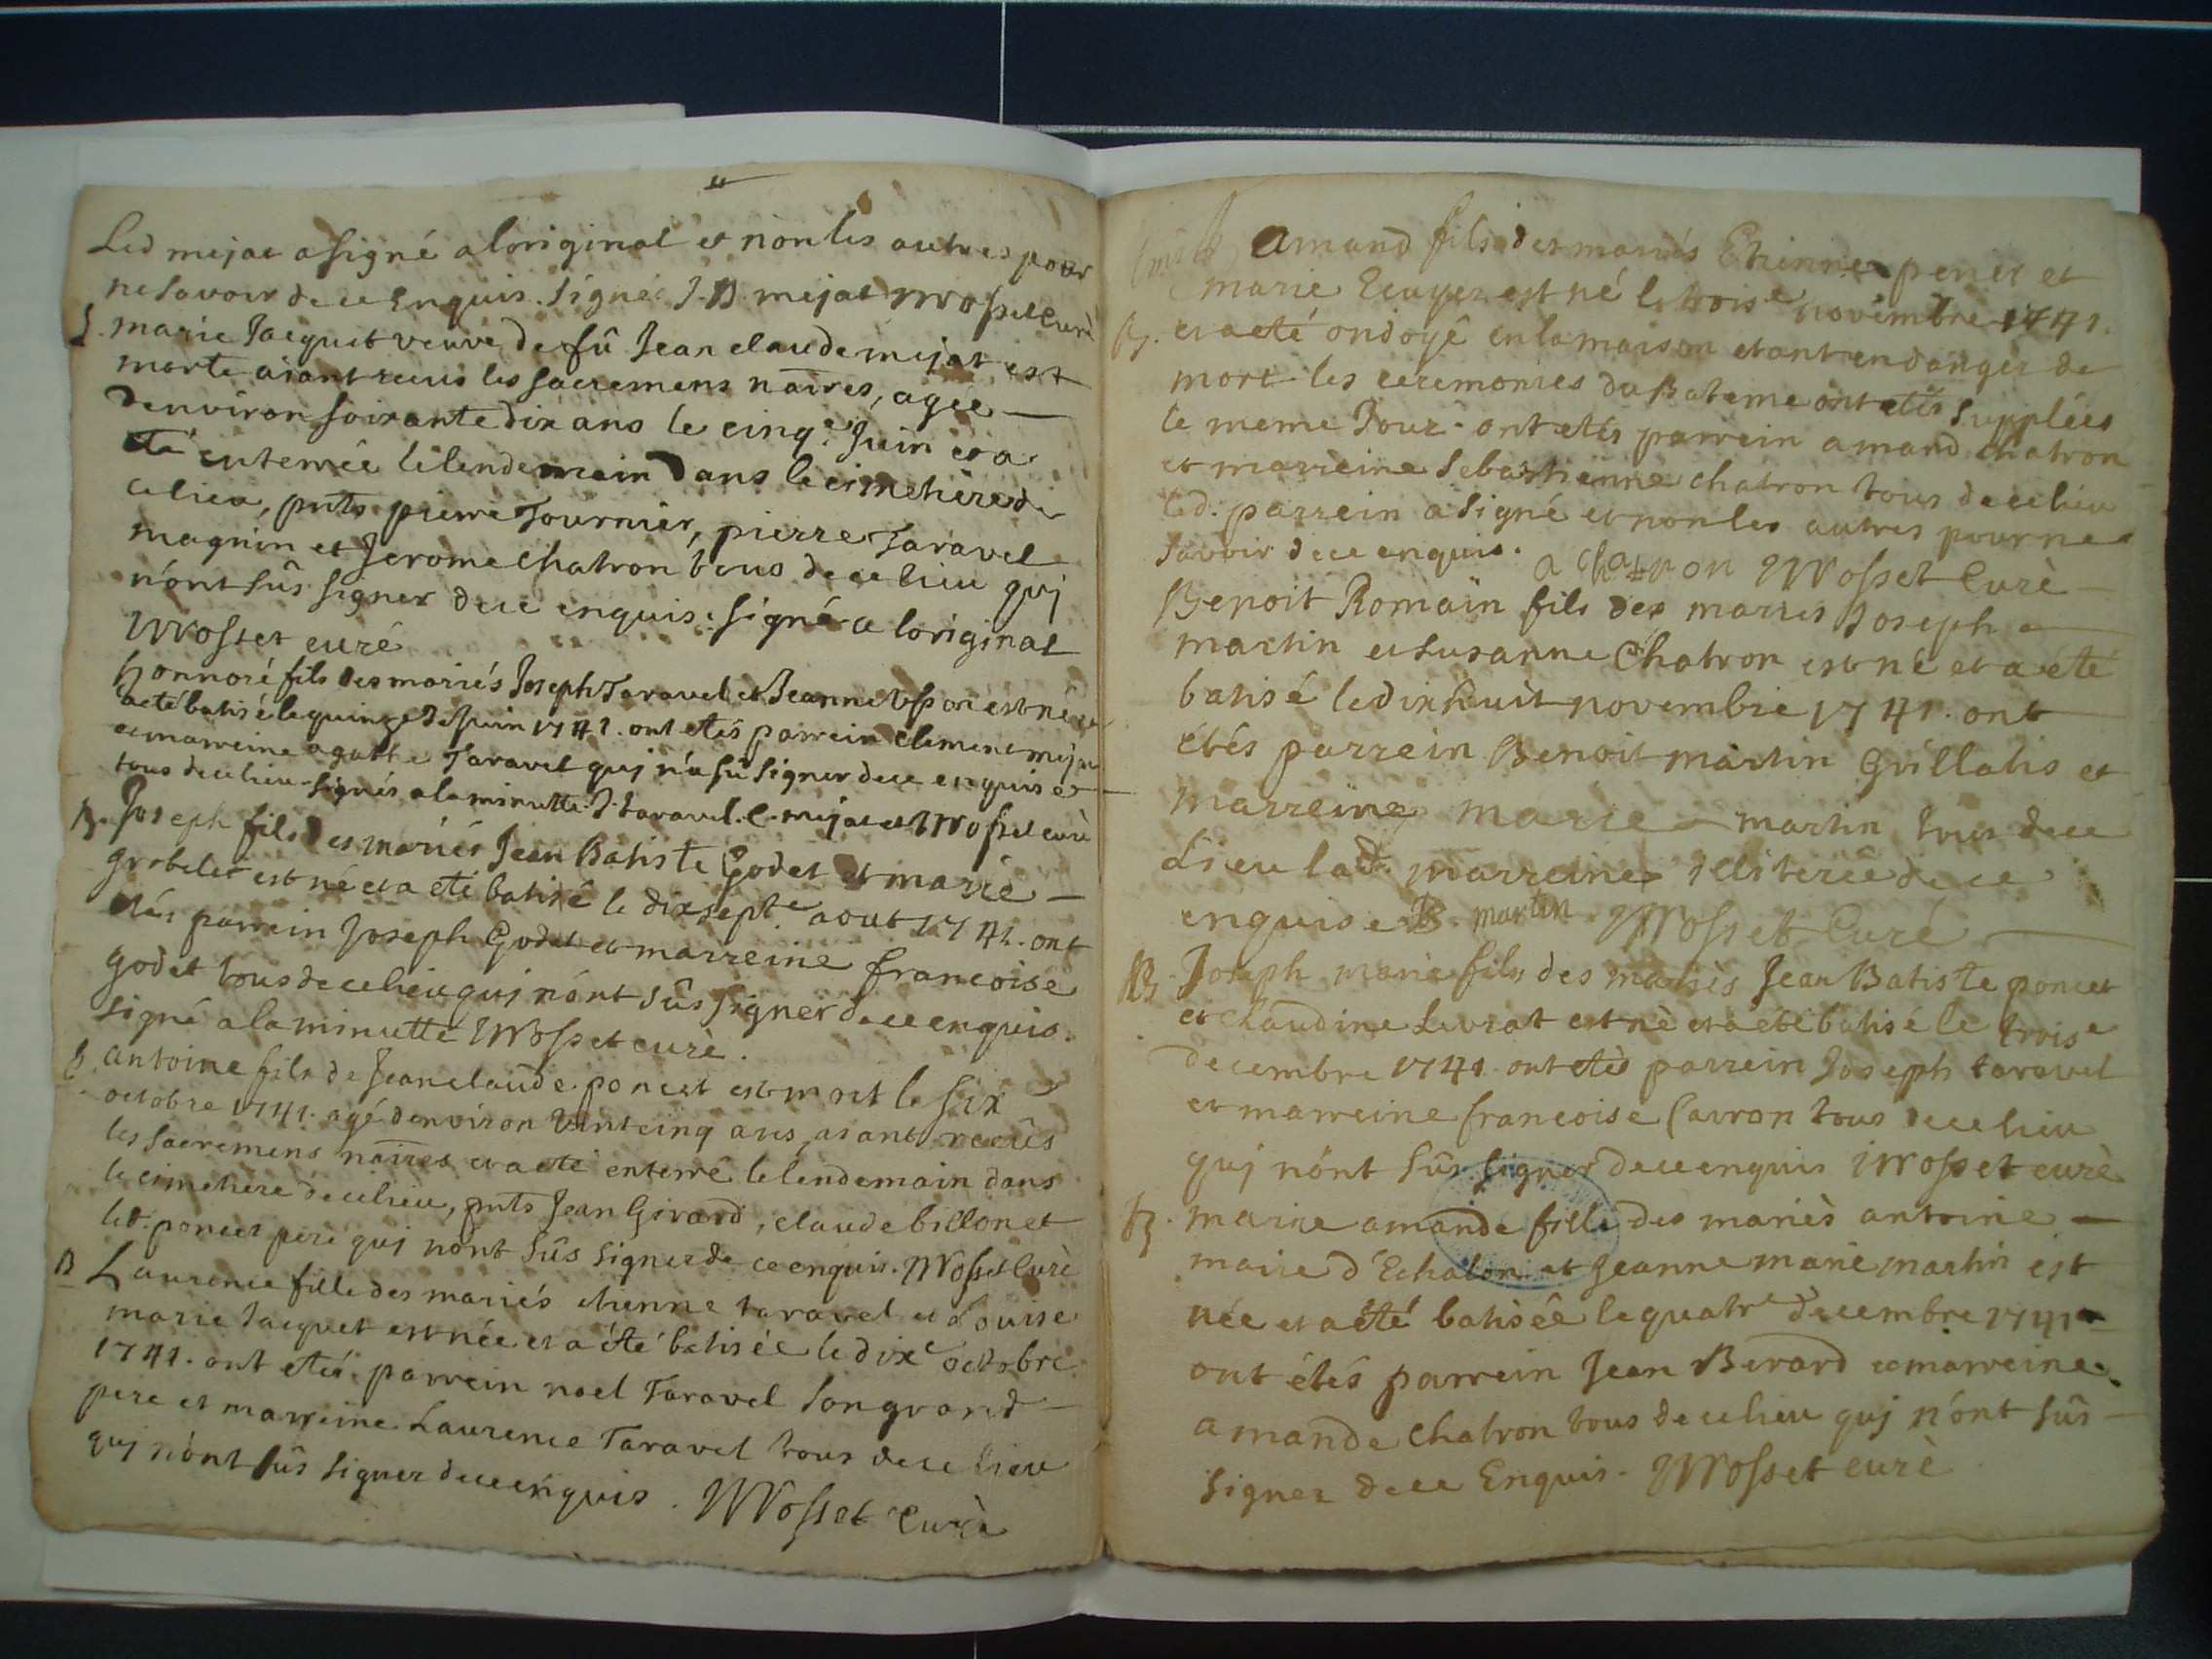 Led mejat a signé a loriginal et non les autres pour
ne savoir de ce Enquis. signés J. B. mejat Mosset Curé
S. marie Jacquet veuve de fû Jean claude mejat est
morte aiant recus les sacremens nãires, agee
denviron soixante dix ans le cinqe. Juin et a
été enterrée le lendemain Dans le cimetière de
ce lieu, pnts pierre Tournier, pierre Taravel
magnin et Jerome chatron tous de ce lieu quj
n'ont sûs signer de ce enquis. signé a loriginal
Mosset curé
honnoré fils des mariés Joseph Taravel et Jeanne est né et
a eté batisé le quinze de Juin 1741. ont etés parrein clement mejat
et marreine agathe Taravel quj n'a sû signer de ce enquise
tous de ce lieu signés a la minutte. J. taravel. C. mejat et Mosset curè
B. Joseph fils des mariés Jean Batiste Godet et marie
Grobelet est né et a eté batisé le dixsepte. aout 1741. ont
etés parrein Joseph Godet et marreine francoise
godet tous de ce lieu quj n'ont sûs signer de ce enquis.
signé a la minutte Mosset curè.
S. antoine fils de Jean claude poncet est mort le six
octobre 1741. agé denviron vintcinq ans, aiant recûs
les sacremens nãires et a eté enterré le lendemain dans
le cimetiere de ce lieu, pnts Jean Girard, claude billon et
led. poncet pere quj n'ont sûs signer de ce enquis. Mosset Curè
B Laurence fille des mariés etienne taravel et Louise
marie Jacquet est née et a été batisée le dixe octobre
1741. ont etés parrein noel Taravel son grand
pere et marreine Laurence Taravel tous de ce lieu
quj n'ont sûs signer de ce enquis. Mosset Curè
Amand fils des mariés Etienne perier et
marie Ecuyer est né le troise novembre 1741.
B. et a eté ondoyê en la maison etant en danger de
mort les ceremonies du Bateme ont etés supplées
le meme Jour. ont etés parrein amand chatron
et marreine Sebastienne chatron tous de ce lieu
led. parrein a signé et non les autres pour ne
savoir de ce enquis. a chatron Mosset Curè
Benoit Romain fils des mariés Joseph
martin et Susanne Chatron est né et a eté
batisé le dixhuit novembre 1741. ont
étés parrein Benoit martin Grillatis et
marreine marie martin tous de ce
Lieu lad. marreine illiterée de ce
enquise B. martin Mosset Curé
B. Joseph marie fils des mariés Jean Batiste poncet
et claudine Levrat est né et a été batisé le troise
decembre 1741. ont etès parrein Joseph taravel
et marreine francoise Carron tous de ce lieu
quj n'ont sûs signer de ce enquis Mosset curè
B. marie amande fille des mariès antoine
maire d'Echalon et Jeanne marie martin est
née et a été batisée le quatre decembre 1741
ont étés parrein Jean Berard et marreine
amande Chatron tous de ce lieu quj n'ont sûs
signer de ce Enquis. Mosset curè